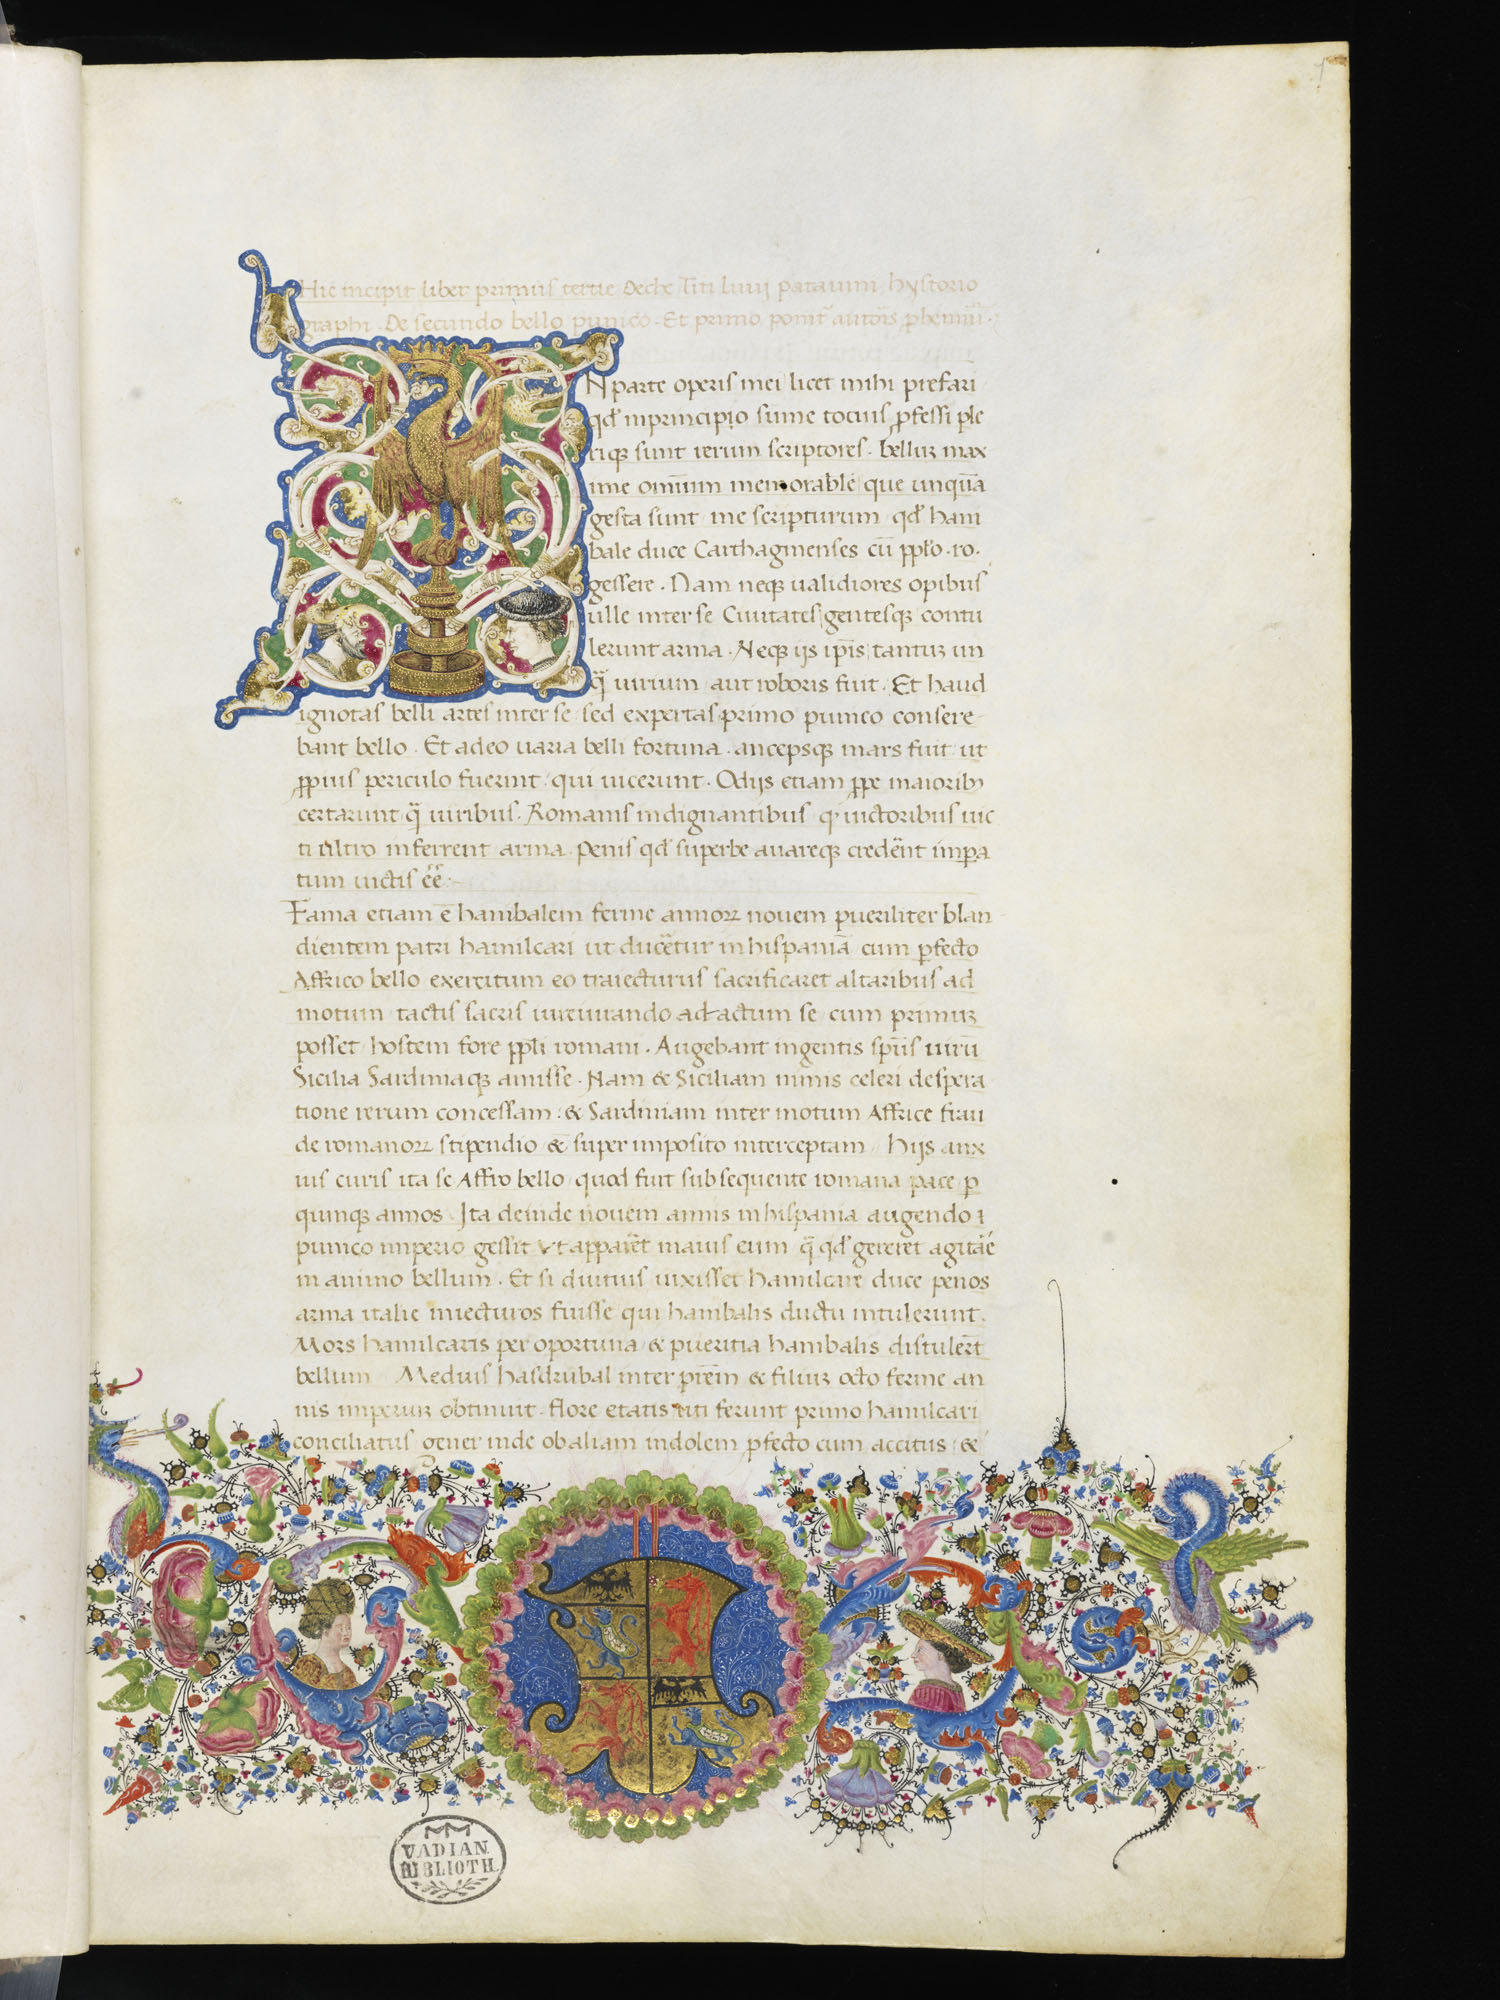 Hic incipit liber primus tertie Deche Titi Liuij patauini hystorio
graphi. De secundo bello punico. Et primo ponit̃ autor̃is p̱hemiũ.
N parte operis mei licet mihi prefari
qđ in principio sũme tocius ꝓfessi ple
riqꝫ sunt rerum scriptores. bellũꝫ max
ime omĩum memorabile que unquã
gesta sunt me scripturum qđ hani
bale duce Carthaginenses cũ ppło. ro.
gessere. Nam neqꝫ ualidiores opibus
ulle inter se Ciuitates gentesqꝫ contu
lerunt arma. Neqꝫ ijs ip̃is tantuꝫ un
q̃ uirium aut roboris fuit. Et haud
ignotas belli artes inter se sed expertas primo punico consere
bant bello. Et adeo uaria belli fortuna. ancepsqꝫ mars fuit ut
ꝓpius ꝑiculo fuerint qui uicerunt. Odijs etiam ꝓpe maioribꝫ
certarunt q̃ uiribus. Romanis indignantibus q uictoribus uic
ti ultro inferrent arma. Penis qđ superbe auareqꝫ creder̃nt imꝑa
tum uictis eẽ.
Fama etiam ẽ hanibalem ferme annoꝝ nouem pueriliter blan
dientem patri hamilcari ut duceret̃ur in hispaniã cum ꝑfecto
Affrico bello exercitum eo traiecturus sacrificaret altaribus ad
motum tactis sacris iureiurando adactum se cum primuꝫ
posset hostem fore ppłi romani. Augebant ingentis sp̃iis uirũ
Sicilia Sardiniaqꝫ amisse. Nam & Siciliam nimis celeri despera
tione rerum concessam. & Sardiniam inter motum Affrice frau
de romanoꝝ stipendio & super imposito interceptam hijs anx
ius curis ita se Affro bello quod fuit sub sequente romana pace ꝑ
quinqꝫ annos. Ita deinde nouem annis in hispania augendo
punico imperio gessit ut apparet̃ maius eum q̃ qđ gereret agitar̃e
in animo bellum. Et si diutius uixisset hamilcare duce penos
arma italie inlecturos fuisse qui hanibalis ductu intulerunt.
Mors hamilcaris per oportuna & pueritia hanibalis distuler̃t
bellum Medius hasdrubal inter pr̃em & filiuꝫ octo ferme an
nis imperiuꝫ obtinuit. flore etatis uti ferunt primo hamilcari
conciliatus gener inde ob aliam indolem ꝓfecto cum accitus &
VADIAN.
BIBLIOTH.